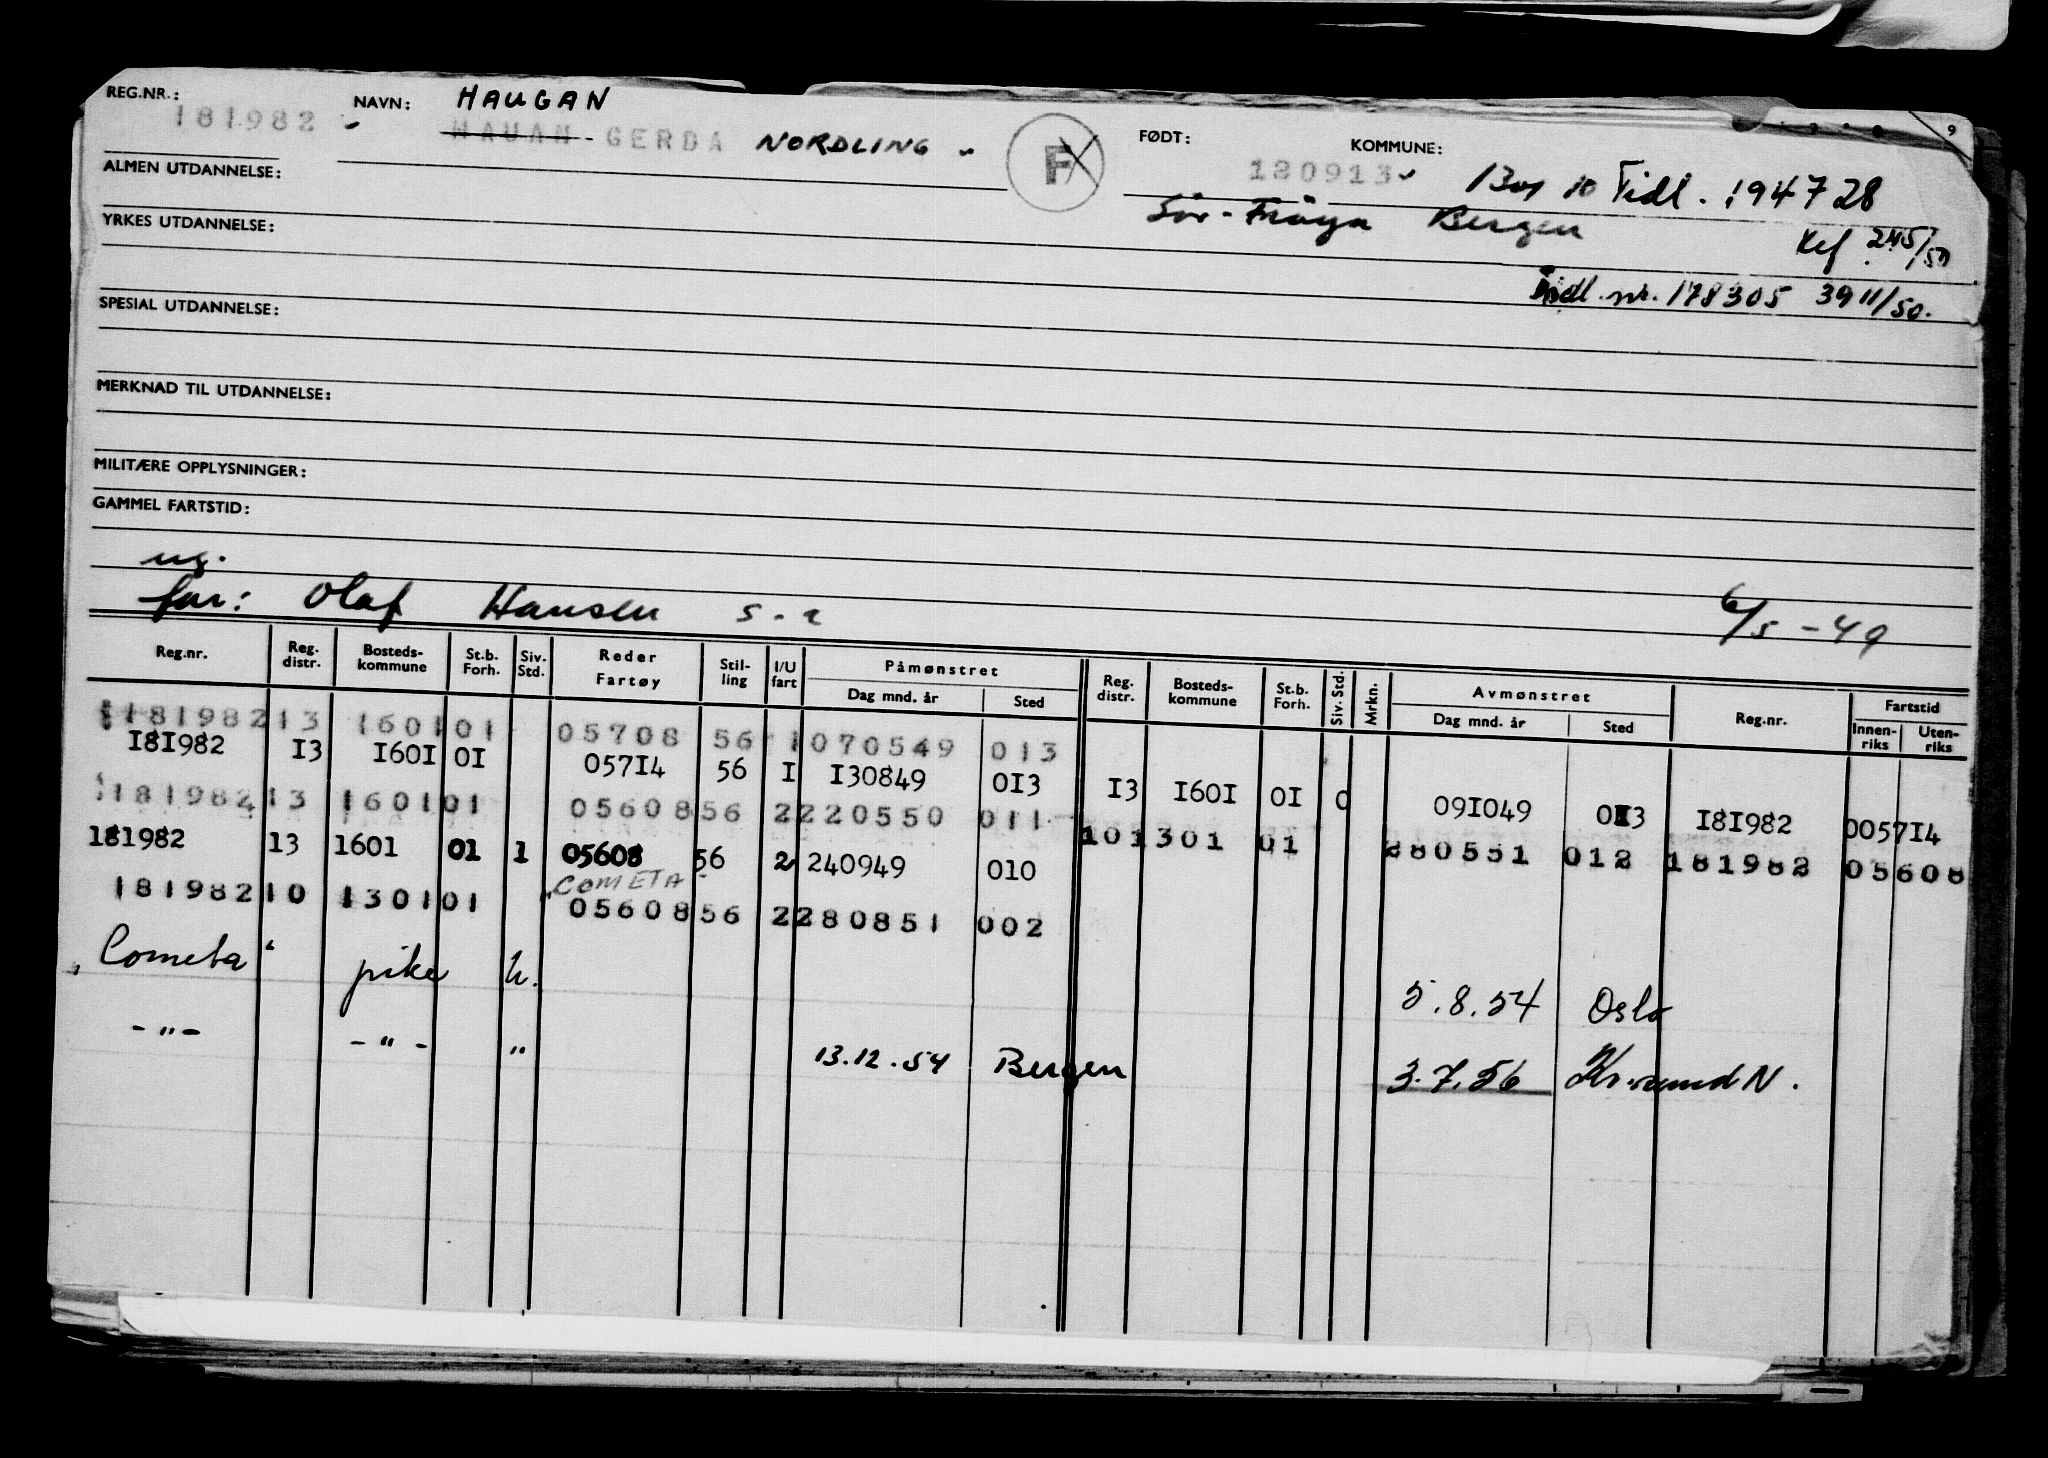 REG.NR.: NAVN: HAUGAN 9
181982 HAUAN GERDA NORDLING F FØDT: KOMMUNE:
120913 1301 10 Tidl. 194728
ALMEN UTDANNELSE: Sör-Fröya Bergen
YRKES UTDANNELSE: Kf 245/50
Tidl. nr. 178305 3911/50.
SPESIAL UTDANNELSE:
MERKNAD TIL UTDANNELSE:
MILITÆRE OPPLYSNINGER:
GAMMEL FARTSTID:
ug.
far: Olaf Hansen s.a 6/5-49
Reg.nr. Reg. distr. Bosteds-kommune St.b. Forh. Siv. Std. Reder Fartøy Stil-ling I/U fart Påmønstret Dag mnd. år Sted Reg. distr. Bosteds-kommune St.b. Forh. Siv. Std. Mrkn. Avmønstret Dag mnd. år Sted Reg.nr. Fartstid Innen-riks Uten-riks
181982 13 1601 01 05708 56 1 070549 013
I8I982 I3 I60I 0I 057I4 56 I I30849 0I3 I3 I60I 0I 0 09I049 0I3 I8I982 0057I4
181982 13 1601 01 05608 56 2 220550 011 10 1301 01 280551 012 181982 05608
181982 13 1601 01 1 05608 56 2 240949 010
COMETA
181982 10 1301 01 05608 56 2 280851 002
"Cometa" pike U. 5.8.54 Oslo
-"- -"- " 13.12.54 Bergen 3.7.56 Kr.sund N.